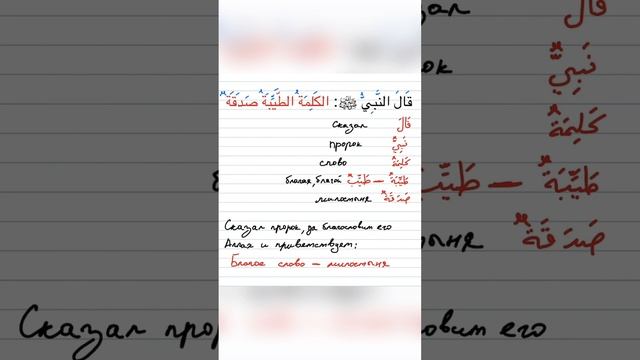 قَالَ النَّبِيُّ ﷺ: الكَلِمَةُ الطَّيِّبَةُ صَدَقَةٌ
сказал قَالَ
пророк نَبِيٌّ
слово كَلِمَةٌ
благая, благой طَيِّبَةٌ – طَيِّبٌ
милостыня صَدَقَةٌ
Сказал пророк, да благословит его
Аллах и приветствует:
Благое слово – милостыня